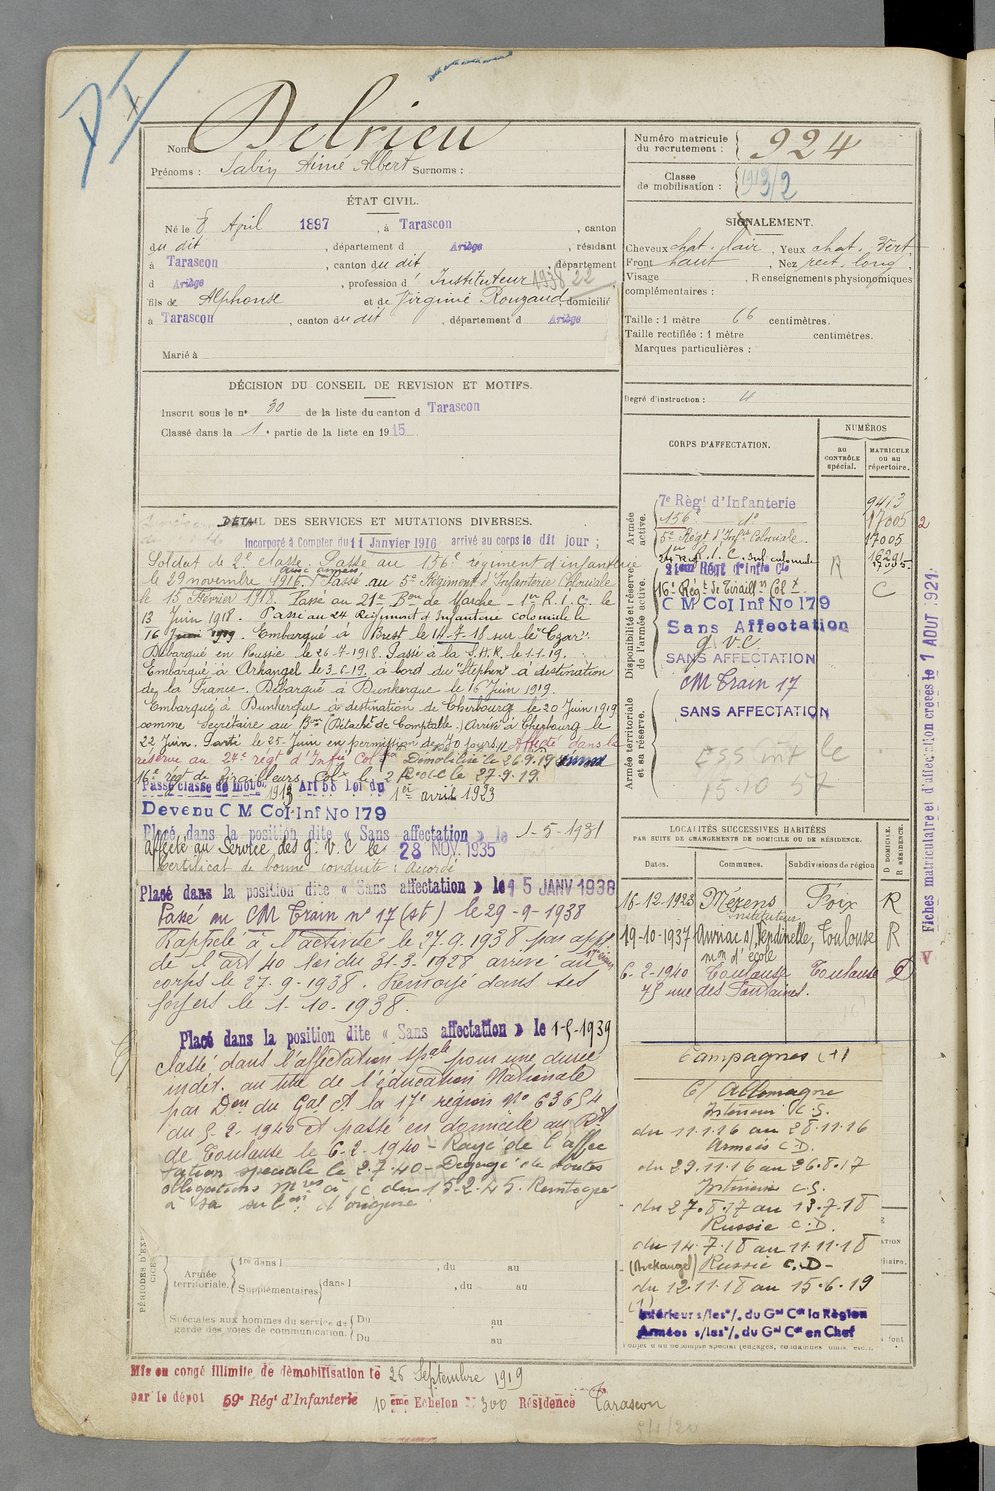 PI
Nom Delrieu
Prénoms : Sabin Aimé Albert Surnoms :
Numéro matricule du recrutement : 924
Classe de mobilisation : 1913/2
ÉTAT CIVIL.
Né le 8 April 1897, à Tarascon, canton
du dit, département d Ariège, résidant
à Tarascon, canton du dit, département
d Ariège, profession d'Instituteur 1938 22
fils de Alphonse et de Virginie Rouzaud, domicilié
à Tarascon, canton du dit, département d Ariège
Marié à
SIGNALEMENT.
Cheveux chat. clair, Yeux chat. vert
Front haut, Nez rect. long
Visage, Renseignements physionomiques
complémentaires :
Taille : 1 mètre 66 centimètres.
Taille rectifiée : 1 mètre centimètres.
Marques particulières :
Degré d'instruction : 4
DÉCISION DU CONSEIL DE REVISION ET MOTIFS.
Inscrit sous le n° 30 de la liste du canton d Tarascon
Classé dans la 1e partie de la liste en 1915
DÉTAIL DES SERVICES ET MUTATIONS DIVERSES.
Incorporé à Compter du 11 Janvier 1916 arrivé au corps le dit jour ;
Soldat de 2e classe. Passé au 156e régiment d'infanterie
le 29 novembre 1916. Passé au 5e Régiment d'Infanterie Coloniale
le 15 Février 1918. Passé au 21e Bon de Marche - 1er R.I.C. le
13 Juin 1918. Passé au 24 Régiment d'Infanterie coloniale le
16 Juin 1919. Embarqué à Brest le 14-7-18 sur le "Czar".
Débarqué en Russie le 26-7-1918. Passé à la S.H.R. le 1.1.19.
Embarqué à Arkangel le 3.6.19, à bord du "Stéphen" à destination
de la France. Débarqué à Dunkerque le 16 Juin 1919.
Embarqué à Dunkerque à destination de Cherbourg le 20 Juin 1919
comme Secrétaire au Bau (Détacht de Comptable) Arrivé à Cherbourg le
22 Juin. Parti le 25 Juin en permission de 30 jours. Affecté dans la
réserve au 24e régt d'Infie Coloniale Démobilisé le 26.9.19
16e régt de tirailleurs Colx le 2 R.O.C.C le 27.9.19
Passé classe de mobon 1913 Art 58 Loi du 1er avril 1923
Devenu C M Col Inf No 179
Placé dans la position dite « Sans affectation » le 1-5-1931
Affecté au Service des g.v.c le 28 NOV. 1935
Certificat de bonne conduite : Accordé
Placé dans la position dite « Sans affectation » le 15 JANV 1938
Passé au CM Train n° 17 (st) le 29-9-1938
Rappelé à l'activité le 27.9.1938 par appl.
de l'art 40 loi du 31-3-1928 arrivé au
corps le 27-9-1938. Renvoyé dans ses
foyers le 1-10-1938.
Placé dans la position dite « Sans affectation » le 1-5-1939
Classé dans l'affectation spale pour une durée
indét. au titre de l'éducation Nationale
par Don du Gal Ct la 17e région N° 63654
du 5-2-1940 et passé en domicile au Rt
de Toulouse le 6-2-1940 - Rayé de l'affec
tation spéciale le 2.7.40 - Dégagé de toutes
obligations mres à /c du 15-2-45. Réintégré
à sa subon d'origine
CORPS D'AFFECTATION.
NUMÉROS
au CONTRÔLE spécial.
MATRICULE ou au répertoire.
Armée active.
7e Régt d'Infanterie 9413
156 do 17005
5e Régt d'Infie Coloniale. 17005
1er R.I.C. 16291
21eme Régt d'infie Cle R
Disponibilité et réserve de l'armée active.
16e Régt de Tiraillrs Colx C
C M Col Inf No 179
Sans Affectation
g.v.c.
SANS AFFECTATION
CM Train 17
SANS AFFECTATION
Armée territoriale et sa réserve.
15.10 57
LOCALITÉS SUCCESSIVES HABITÉES
PAR SUITE DE CHANGEMENTS DE DOMICILE OU DE RÉSIDENCE.
Dates. Communes. Subdivisions de région D DOMICILE. R RÉSIDENCE.
16-12-1923 Mérens Foix R
Instituteur
19-10-1937 Auriac s/ Vendinelle, Toulouse R
mon d'école
6-2-1940 Toulouse Toulouse D
75 rue des Fontaines.
Campagnes (1)
C/ Allemagne
Intérieur C.S.
du 11.1.16 au 28.11.16
Armées C.D.
du 29.11.16 au 26.8.17
Intérieur C.S.
du 27.8.17 au 13.7.18
Russie C.D.
du 14.7.18 au 11.11.18
(Arckangel) Russie C.D-
du 12.11.18 au 15.6.19
(1)
Intérieur s/les o/. du Gal Ct la Région
Armées s/les o/. du Gal Ct en Chef
Fiches matriculaire et d'affectation créées le 1 AOUT 1921.
PÉRIODES D'EXERCICES.
Armée territoriale. 1re dans l , du au
Supplémentaires dans l , du au
Spéciales aux hommes du service de garde des voies de communication. Du au
Du au
Mis en congé illimité de démobilisation le 26 Septembre 1919
par le dépôt 59e Régt d'Infanterie 10eme Echelon N° 300 Résidence Tarascon